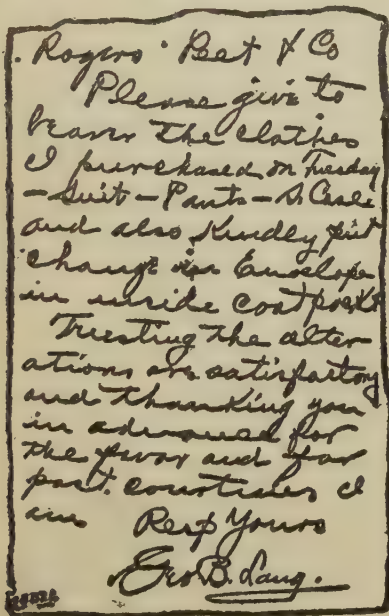 Rogers Peet & Co
Please give to
bearer the clothes
I purchased on Tuesday
- Suit - Pants - S. Case
and also Kindly put
change in Envelope
in inside coat pocket
Trusting the alter
ations are satisfactory
and thanking you
in advance for
the favor and for
past courtesies I
am Resp Yours
Geo B. Lang.